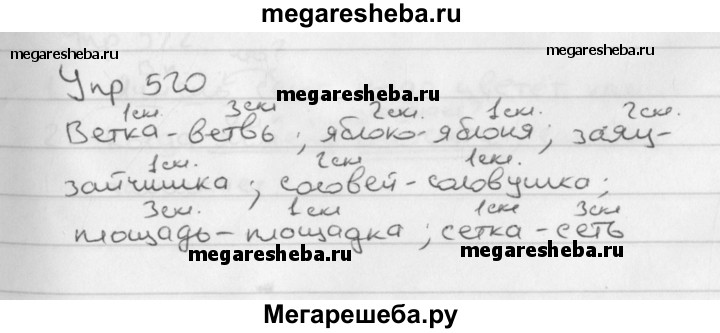 megaresheba.ru
megaresheba.ru
megaresheba.ru
Упр 520
megaresheba.ru
1скл. 3скл 2скл. 1скл. 2скл.
Ветка-ветвь; яблоко-яблоня; заяц-
1скл. 2скл 1скл.
зайчишка; соловей-соловушка;
3скл. 1скл 1скл 3скл
площадь-площадка; сетка-сеть
megaresheba.ru
megaresheba.ru
Мегарешеба.ру